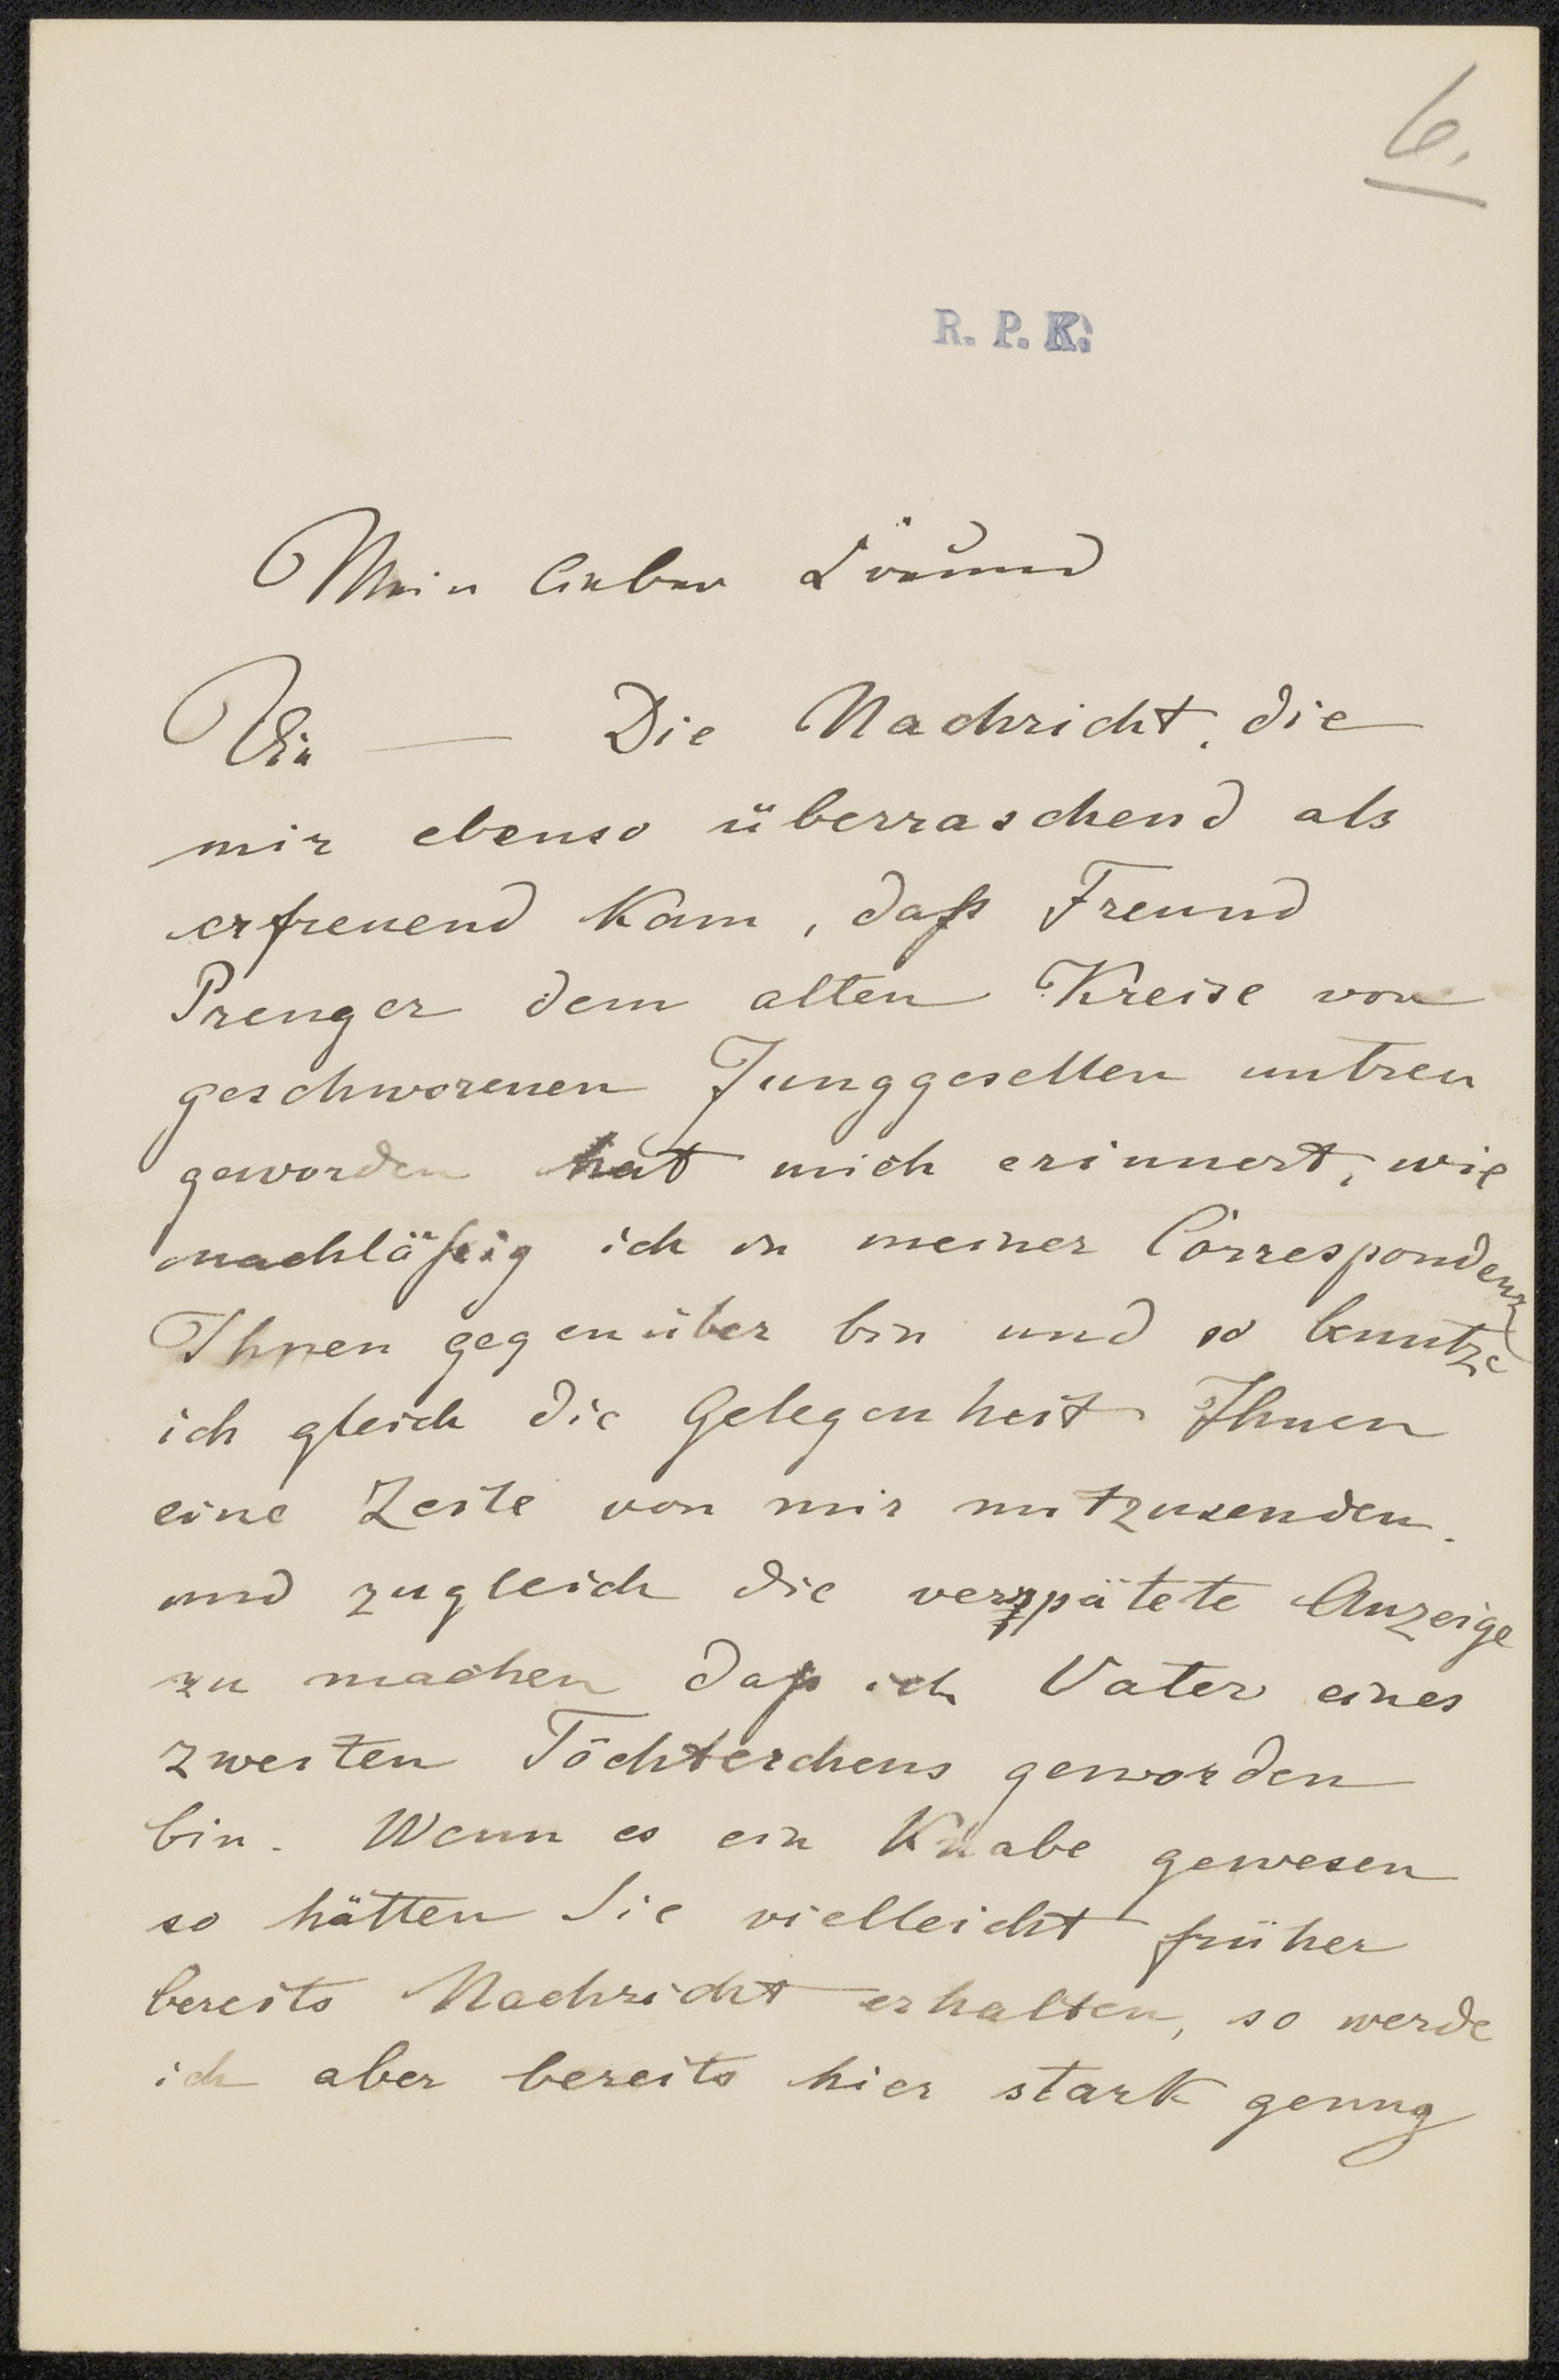 6.
R. P. K.
Mein lieber Freund
Die — Die Nachricht, die
mir ebenso überraschend als
erfreuend kam, daß Freund
Prenger dem alten Kreise von
geschworenen Junggesellen untreu
geworden hat mich erinnert, wie
nachläßig ich in meiner Correspondenz
Ihnen gegenüber bin und so benutze
ich gleich die Gelegenheit Ihnen
eine Zeile von mir mitzusenden.
und zugleich die verspätete Anzeige
zu machen daß ich Vater eines
zweiten Töchterchens geworden
bin. Wenn es ein Knabe gewesen
so hätten Sie vielleicht früher
bereits Nachricht erhalten, so werde
ich aber bereits hier stark genug